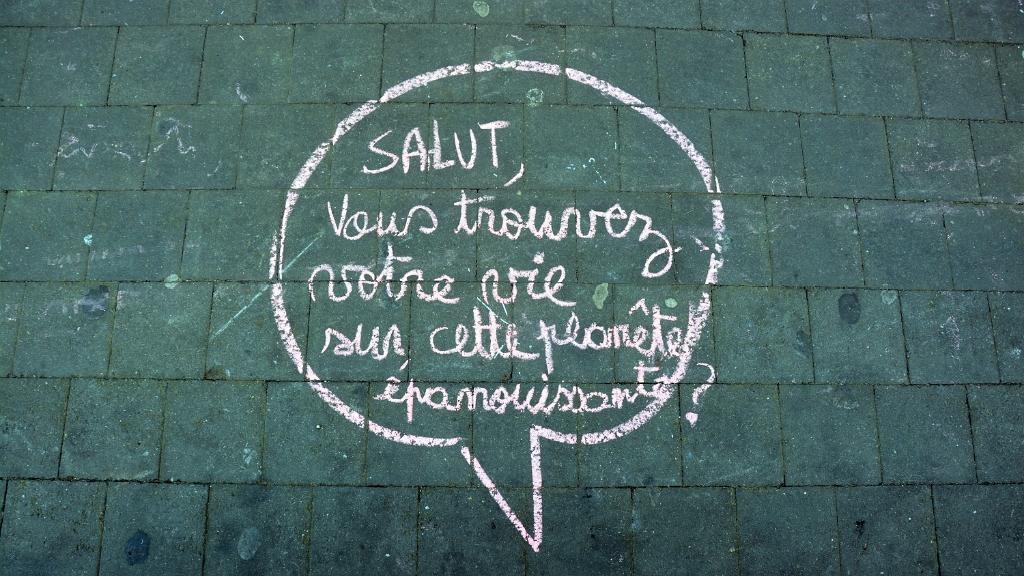 SALUT,
Vous trouvez
votre vie
sur cette planète
épanouissante ?